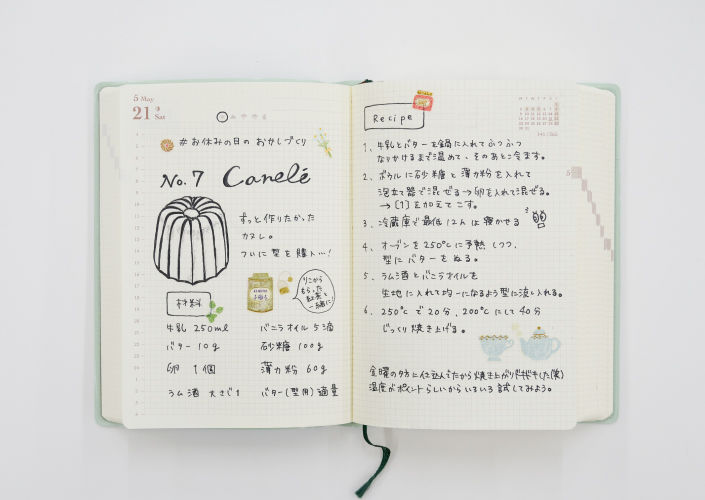 5 May
21 Sat
#お休みの日のおかしづくり
No.7 Canelé
ずっと作りたかった
カヌレ。
ついに型を購入…!
りこから
もらった
紅茶と
一緒に!
材料
牛乳 250ml バニラオイル 5滴
バター 10g 砂糖 100g
卵 1個 薄力粉 60g
ラム酒 大さじ1 バター(型用) 適量
Recipe
1、牛乳とバターを鍋に入れてふつふつ
なりかけるまで温めて、そのあと冷ます。
2、ボウルに砂糖と薄力粉を入れて
泡立て器で混ぜる→卵を入れて混ぜる。
→[1]を加えてこす。
3、冷蔵庫で最低12hは寝かせる
4、オーブンを250℃に予熱しつつ、
型にバターをぬる。
5、ラム酒とバニラオイルを
生地に入れて均一になるよう型に流し入れる。
6、250℃で20分、200℃にして40分
じっくり焼き上げる。
金曜の夕方に仕込んでたから焼き上がりドキドキした(笑)
温度がポイントらしいからいろいろ試してみよう。
5